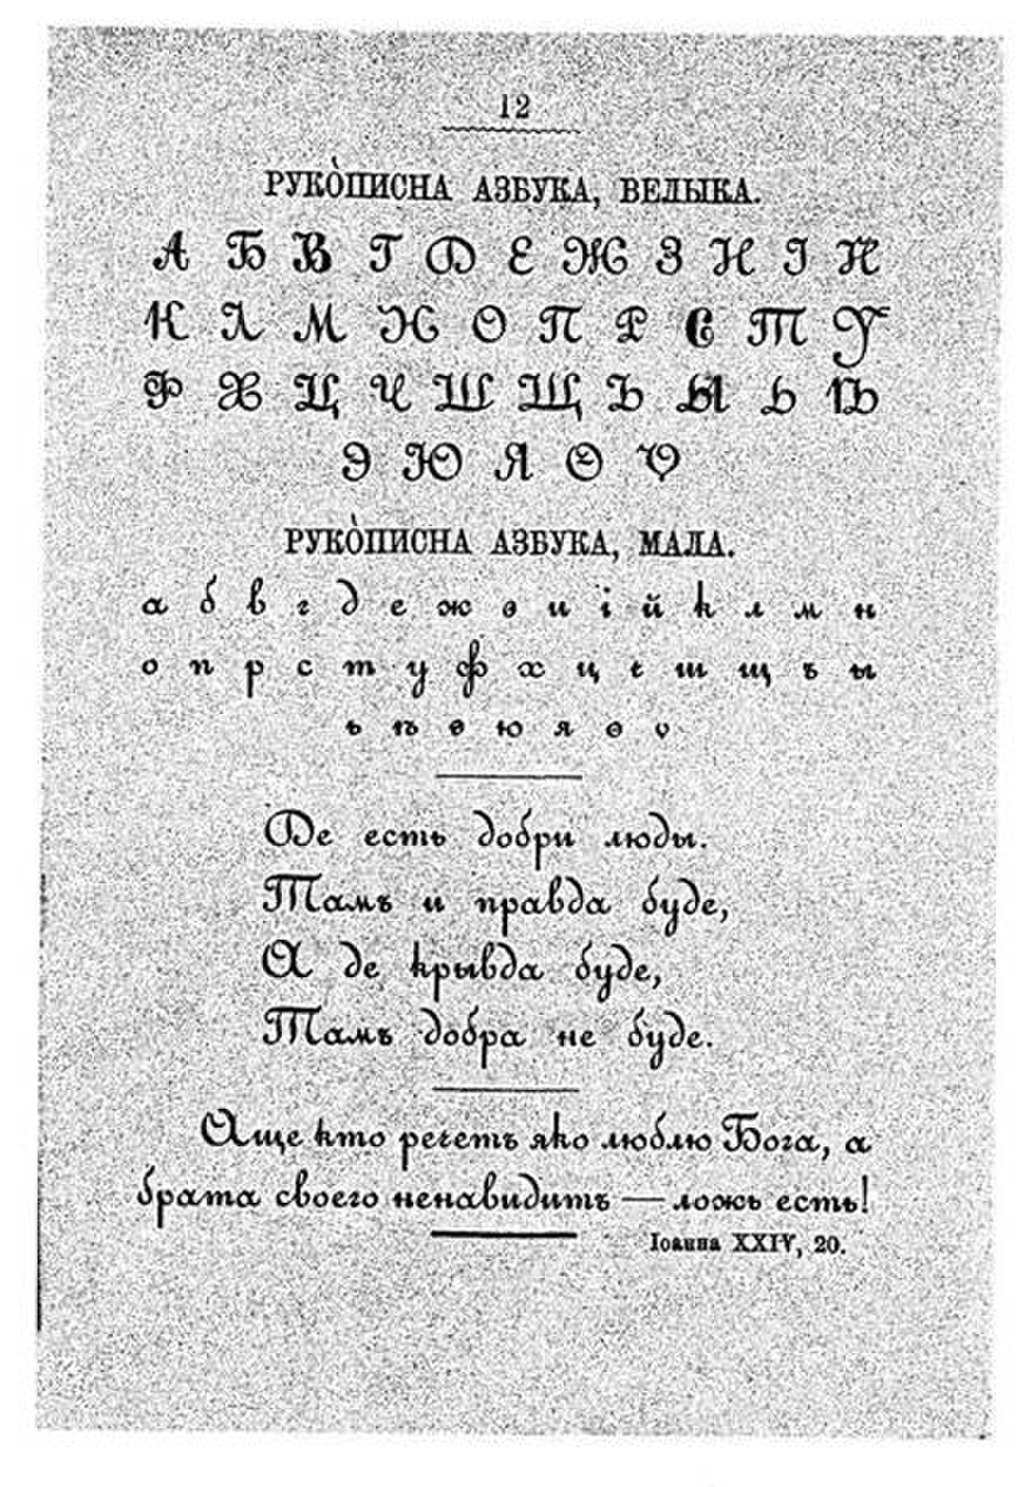 12
РУКО̀ПИСНА АЗБУКА, ВЕЛЫКА.
А Б В Г Д Е Ж З И І Й
К Л М Н О П Р С Т У
Ф Х Ц Ч Ш Щ Ъ Ы Ь Ѣ
Э Ю Я Ѳ Ѵ
РУКО̀ПИСНА АЗБУКА, МАЛА.
а б в г д е ж з и і й к л м н
о п р с т у ф х ц ч ш щ ъ ы
ь ѣ э ю я ѳ ѵ
Де есть добри люды.
Тамъ и правда буде,
А де крывда буде,
Тамъ добра не буде.
Аще кто речетъ яко люблю Бога, а
брата своего ненавидитъ — ложь есть!
Іоанна XXIV, 20.